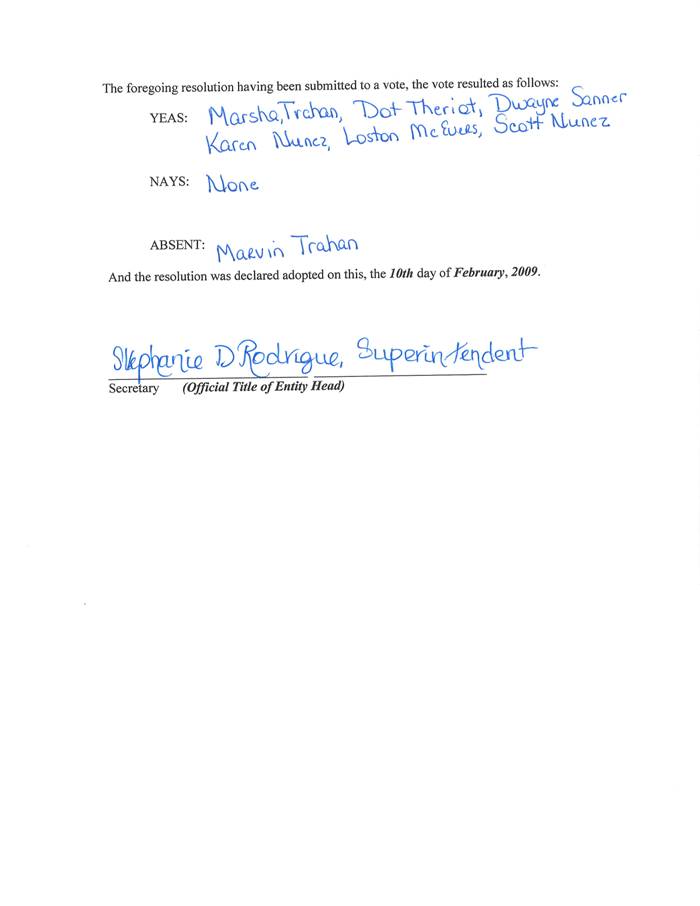 The foregoing resolution having been submitted to a vote, the vote resulted as follows:
YEAS: Marsha, Trahan, Dot Theriot, Dwayne Sanner
Karen Nunez, Loston McEvers, Scott Nunez
NAYS: None
ABSENT: Marvin Trahan
And the resolution was declared adopted on this, the 10th day of February, 2009.
Stephanie D Rodrigue, Superintendent
Secretary (Official Title of Entity Head)